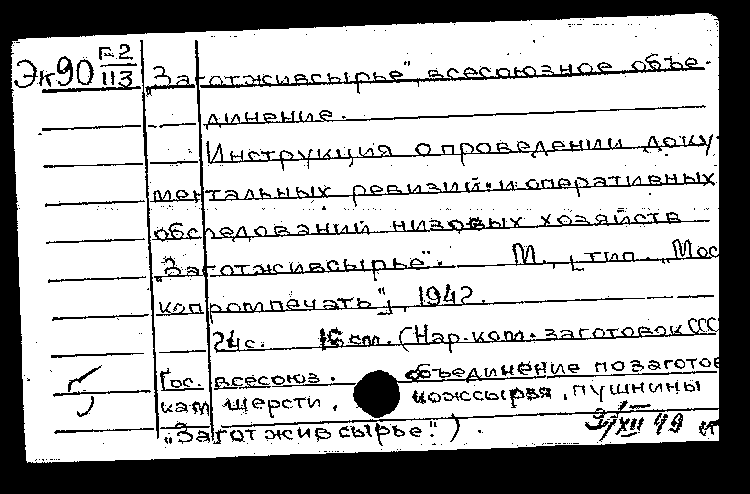 Эк90 Г-2/113
„Заготживсырье", всесоюзное объе-
динение.
Инструкция о проведении доку-
ментальных ревизий и оперативных
обследований низовых хозяйств
"Заготживсырье". М., [тип. „Мос
копромпечать"], 1942.
24 с. 16 см. (Нар. ком. заготовок ССС
Гос. всесоюз. объединение по загото
кам шерсти, кожсырья, пушнины
„Заготживсырье".).
XII 49